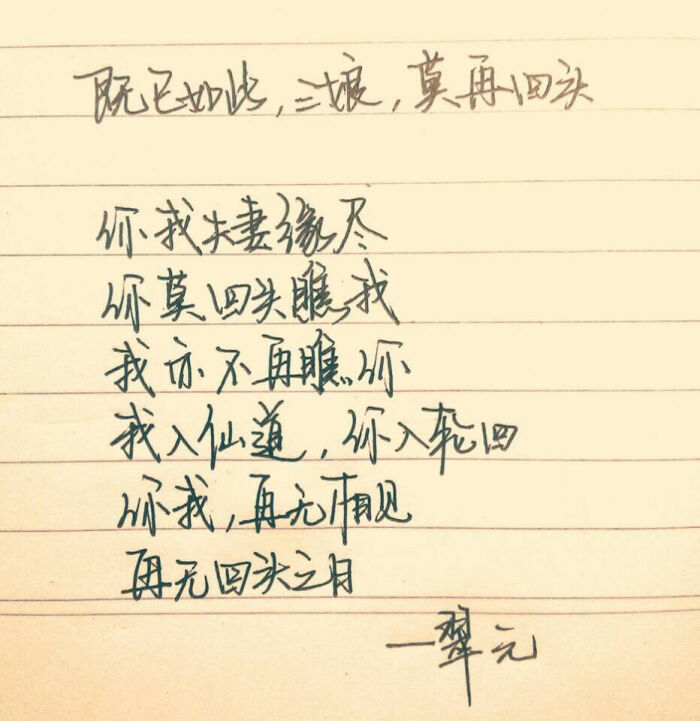 既已如此，三娘，莫再回头
你我夫妻缘尽
你莫回头瞧我
我亦不再瞧你
我入仙道，你入轮回
你我，再无相见
再无回头之日
—翠元